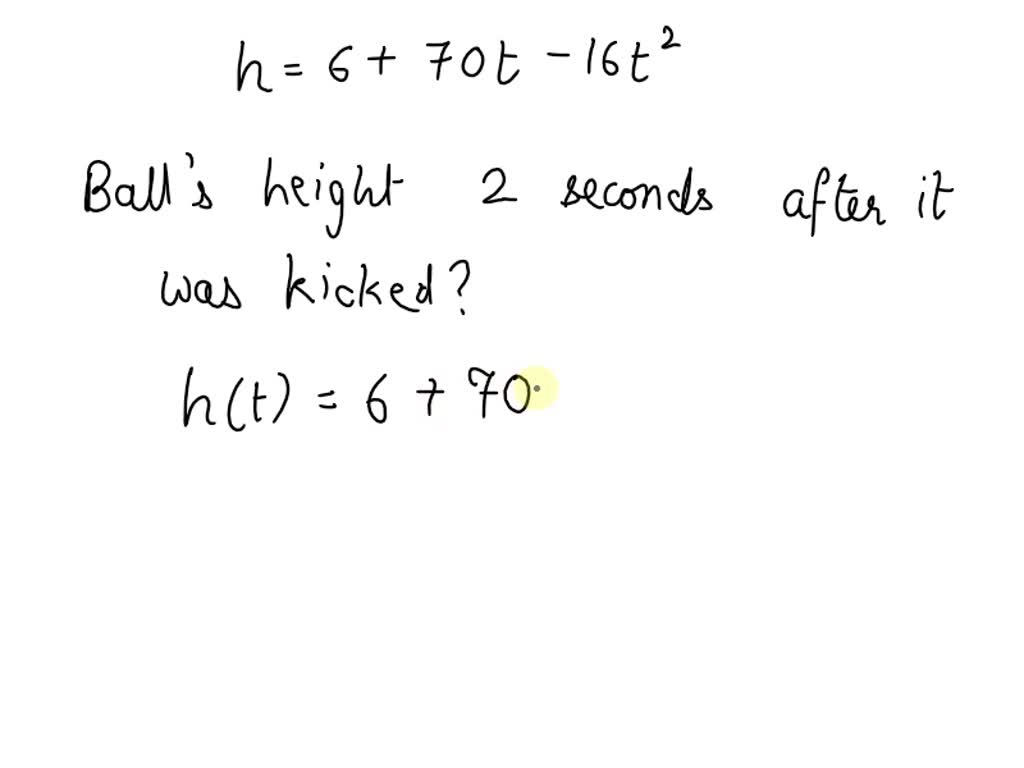 h = 6 + 70t - 16t²
Ball's height 2 seconds after it
was kicked?
h(t) = 6 + 70